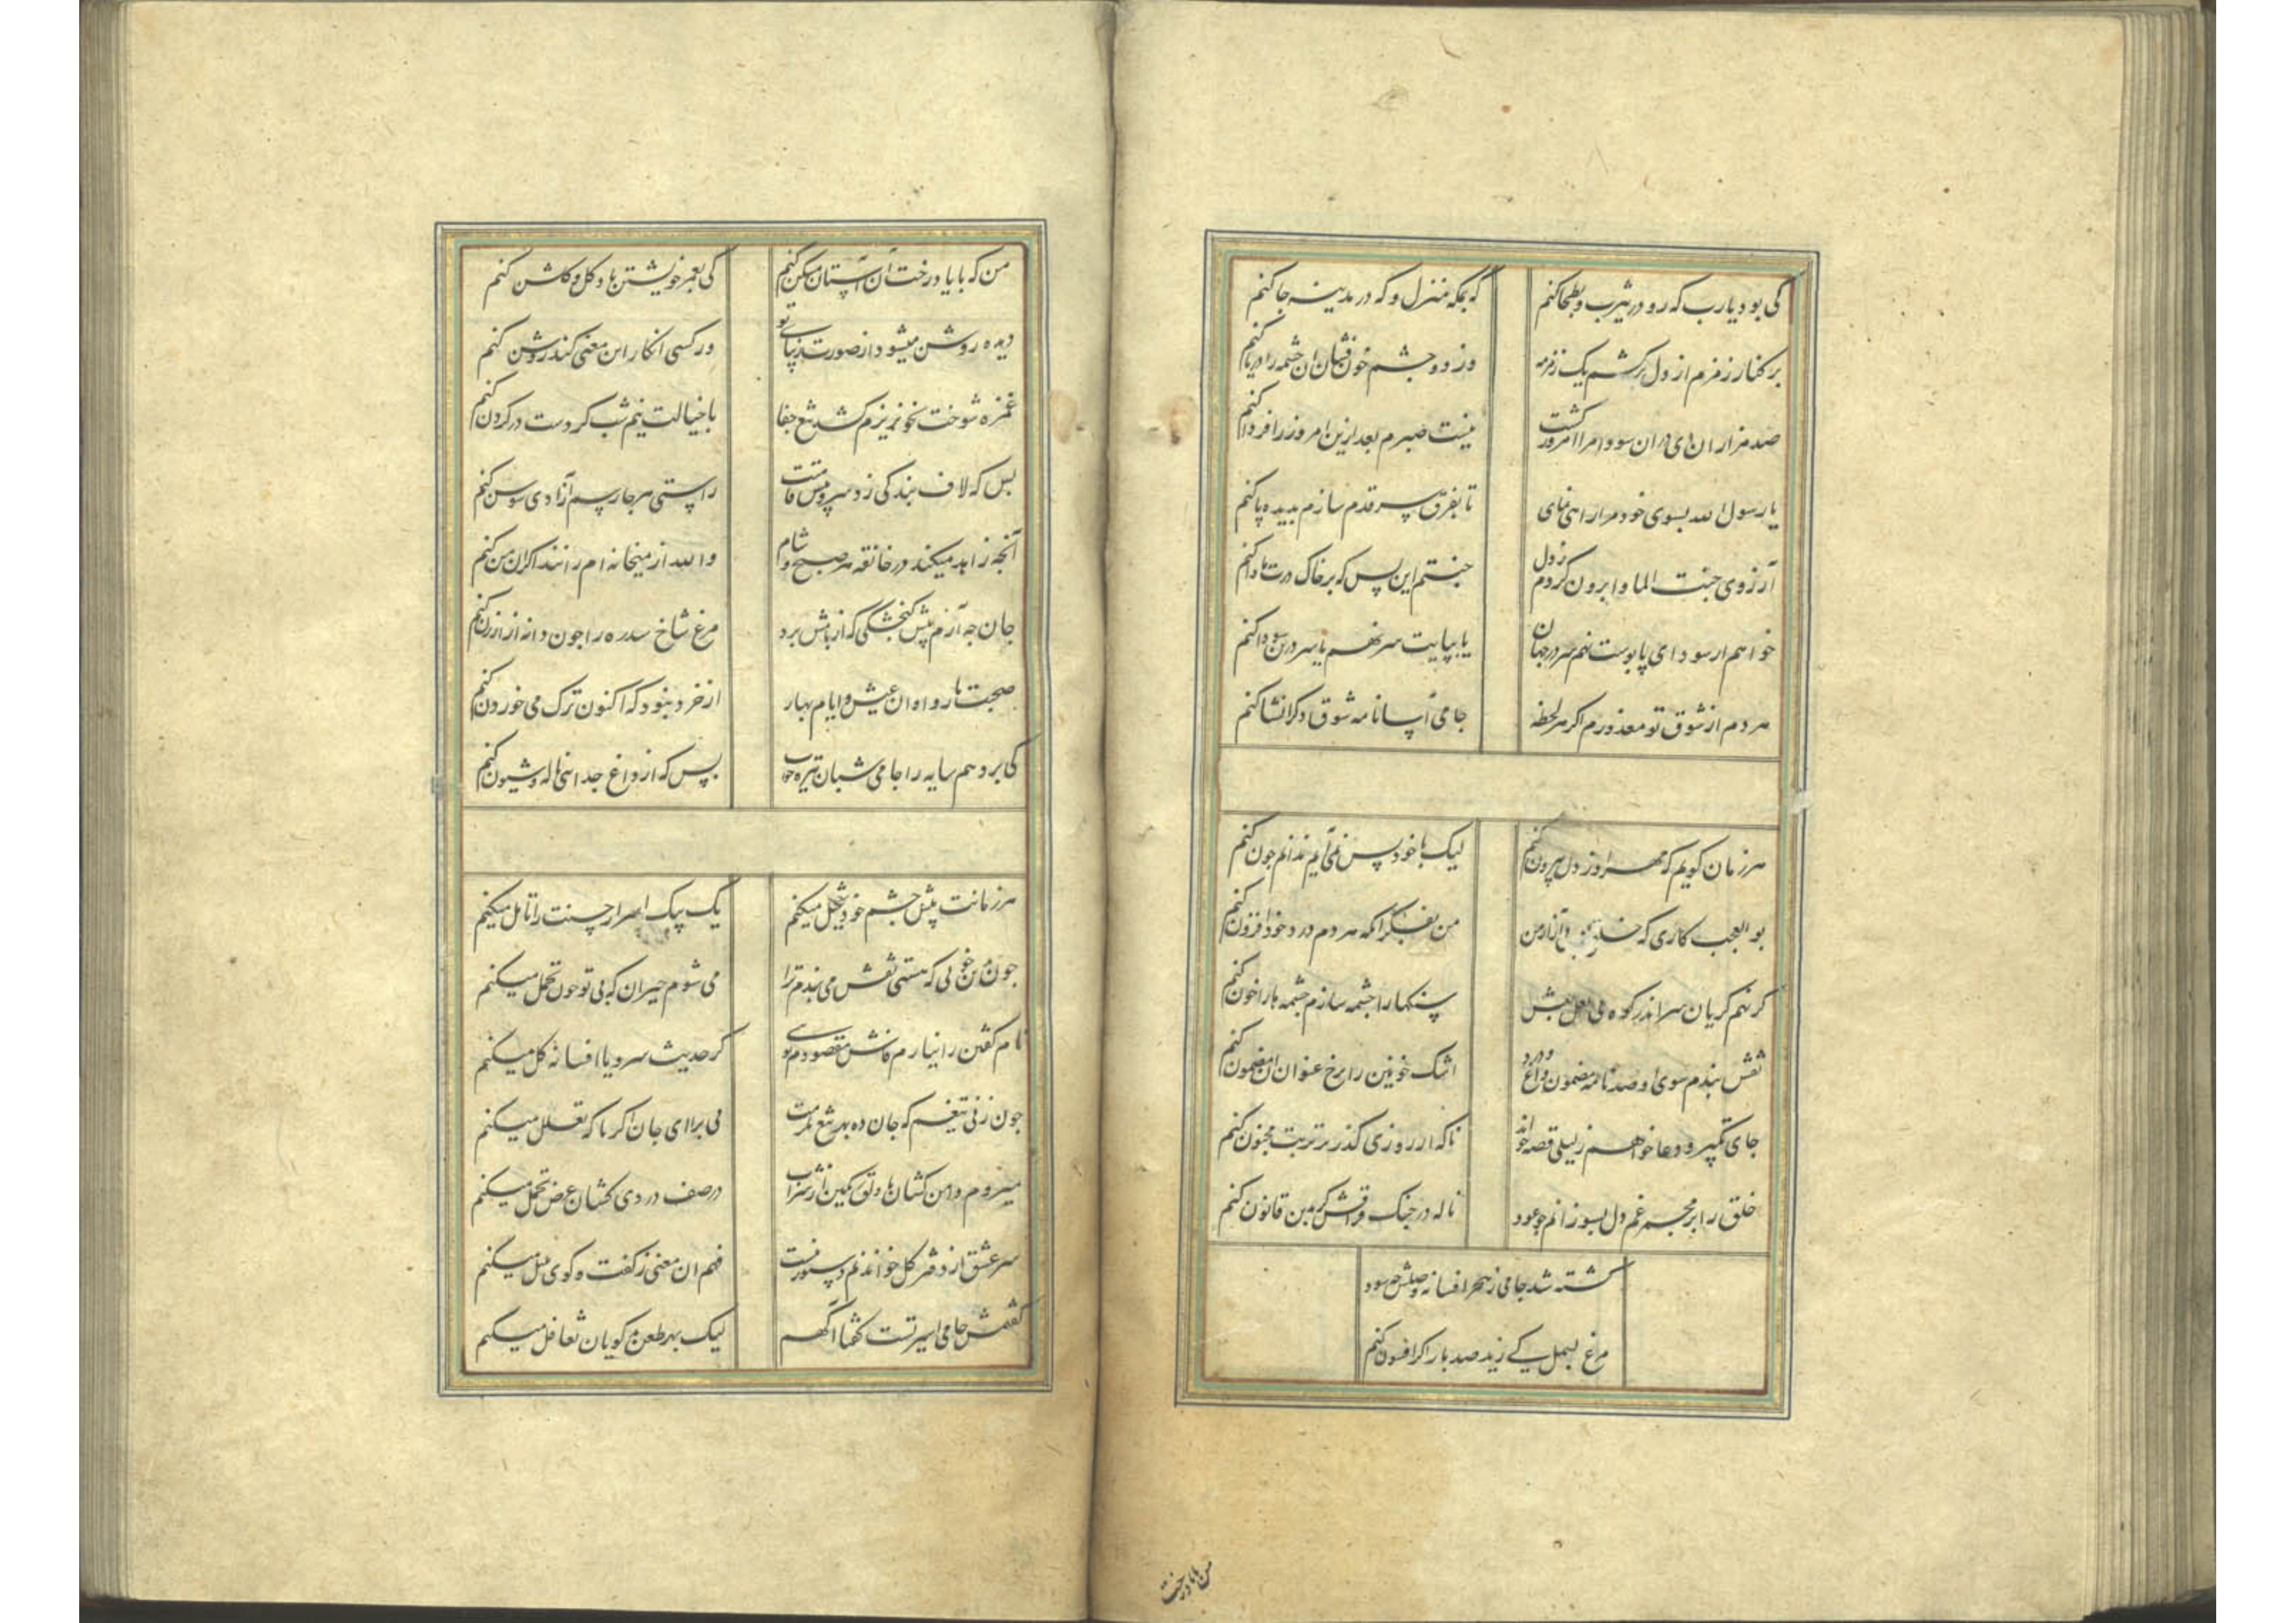 کی بود یارب که رو در یثرب و بطحا کنم
که بمکه منزل و که در مدینه جا کنم
بر کنار زمزم از دل برکشم یک زمزمه
وز دو چشم خون فشان ان چشمه را دریا کنم
صد هزاران دی دران سودا مرا امروز کشت
نیست صبرم بعد ازین امروز را فردا کنم
یا رسول الله بسوی خود مرا راهی نمای
تا بفرق سر قدم سازم بدیده پا کنم
آرزوی جنت الماوا برون کردم ز دل
جنتم این بس که بر خاک درت ماوا کنم
خواهم از سودای پابوست نهم سر در جهان
یا بپایت سر نهم یا سر درین سودا کنم
مردم از شوق تو معذورم اکر هر لحظه
جامی آسا نامه شوق دکر انشا کنم
هر زمان کویم که مهر او ز دل بیرون کنم
لیک با خود بس نمی آیم ندانم جون کنم
بو العجب کاری که خلق آزار من
من بفکر انکه هر دم درد خود افزون کنم
کر نهم کریان سر اندر کوه بی لعل لبش
سنکها را چشمه سازم چشمه ها را خون کنم
نقش بندم سوی او صد نامه مضمون درد و داغ
اشک خونین را برخ عنوان ان مضمون کنم
جای تکبیر و دعا خواهم ز لیلی قصه خواند
ناکه ار روزی کذر بر تربت مجنون کنم
خلق را بر مجمر غم دل بسوزانم چو عود
ناله در جنک فراقش کر بدین قانون کنم
کشته شد جامی ز هجر افسانه وصلش چه سود
مرغ بسمل کے زید صد بار اکر افسون کنم
من که با یاد رخت ان آستان مسکن کنم
کی بعمر خویشتن یاد کل و کلشن کنم
دیده روشن میشود از صورت زیبای تو
ور کسی انکار این معنی کند روشن کنم
غمزه شوخت بخونریزم کشد تیغ جفا
با خیالت نیم شب کر دست در کردن کنم
بس که لاف بندکی زد سرو پیش قامتت
راستی هر جا رسم آزادی سوسن کنم
آنجه زاهد میکند در خانقه هر صبح و شام
والله از میخانه ام رانند اکر ان من کنم
جان جه آرم پیش کنجشکی که از بامش برد
مرغ شاخ سدره را جون دانه از ارزن کنم
صحبت یار و اوان عیش و ایام بهار
از خرد نبود که اکنون ترک می خوردن کنم
کی برد همسایه را جامی شبان تیره خواب
بس که از داغ جدائی ناله و شیون کنم
هر زمانت پیش جشم خود تخیل میکنم
یک بیک اسرار حسنت را تامل میکنم
جون بدین خوبی که هستی نقش می بندم ترا
می شوم حیران که بی تو جون تحمل میکنم
نام کفتن را نیارم فاش مقصودم توی
کر حدیث سرو یا افسانه کل میکنم
جون زنی تیغم که جان ده بهر تیغ
نی برای جان اکر ناکه تعلل میکنم
میروم دامن کشان با دلق رنکین از شراب
در صف دردی کشان عرض تجمل میکنم
سر عشق از دفتر کل خواندنم دستور نیست
فهم ان معنی ز کفت و کوی بلبل میکنم
کفتمش جامی اسیر تست کفتا اکهم
لیک بهر طعن کویان تغافل میکنم
من که با یاد رخت